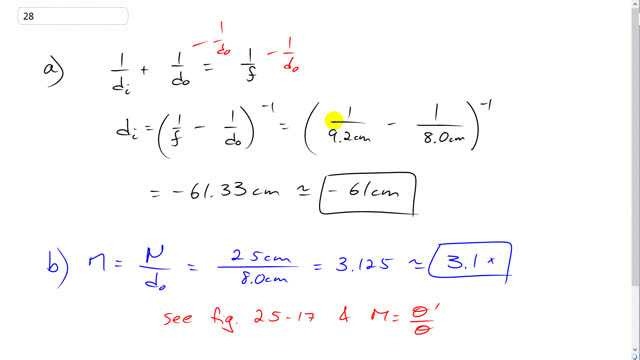 28
a) 1/di + 1/do - 1/do = 1/f - 1/do
di = (1/f - 1/do)^-1 = (1/9.2cm - 1/8.0cm)^-1
= -61.33cm ≃ -61cm
b) M = N/do = 25cm/8.0cm = 3.125 ≃ 3.1 ×
see fig. 25-17 & M = θ'/θ